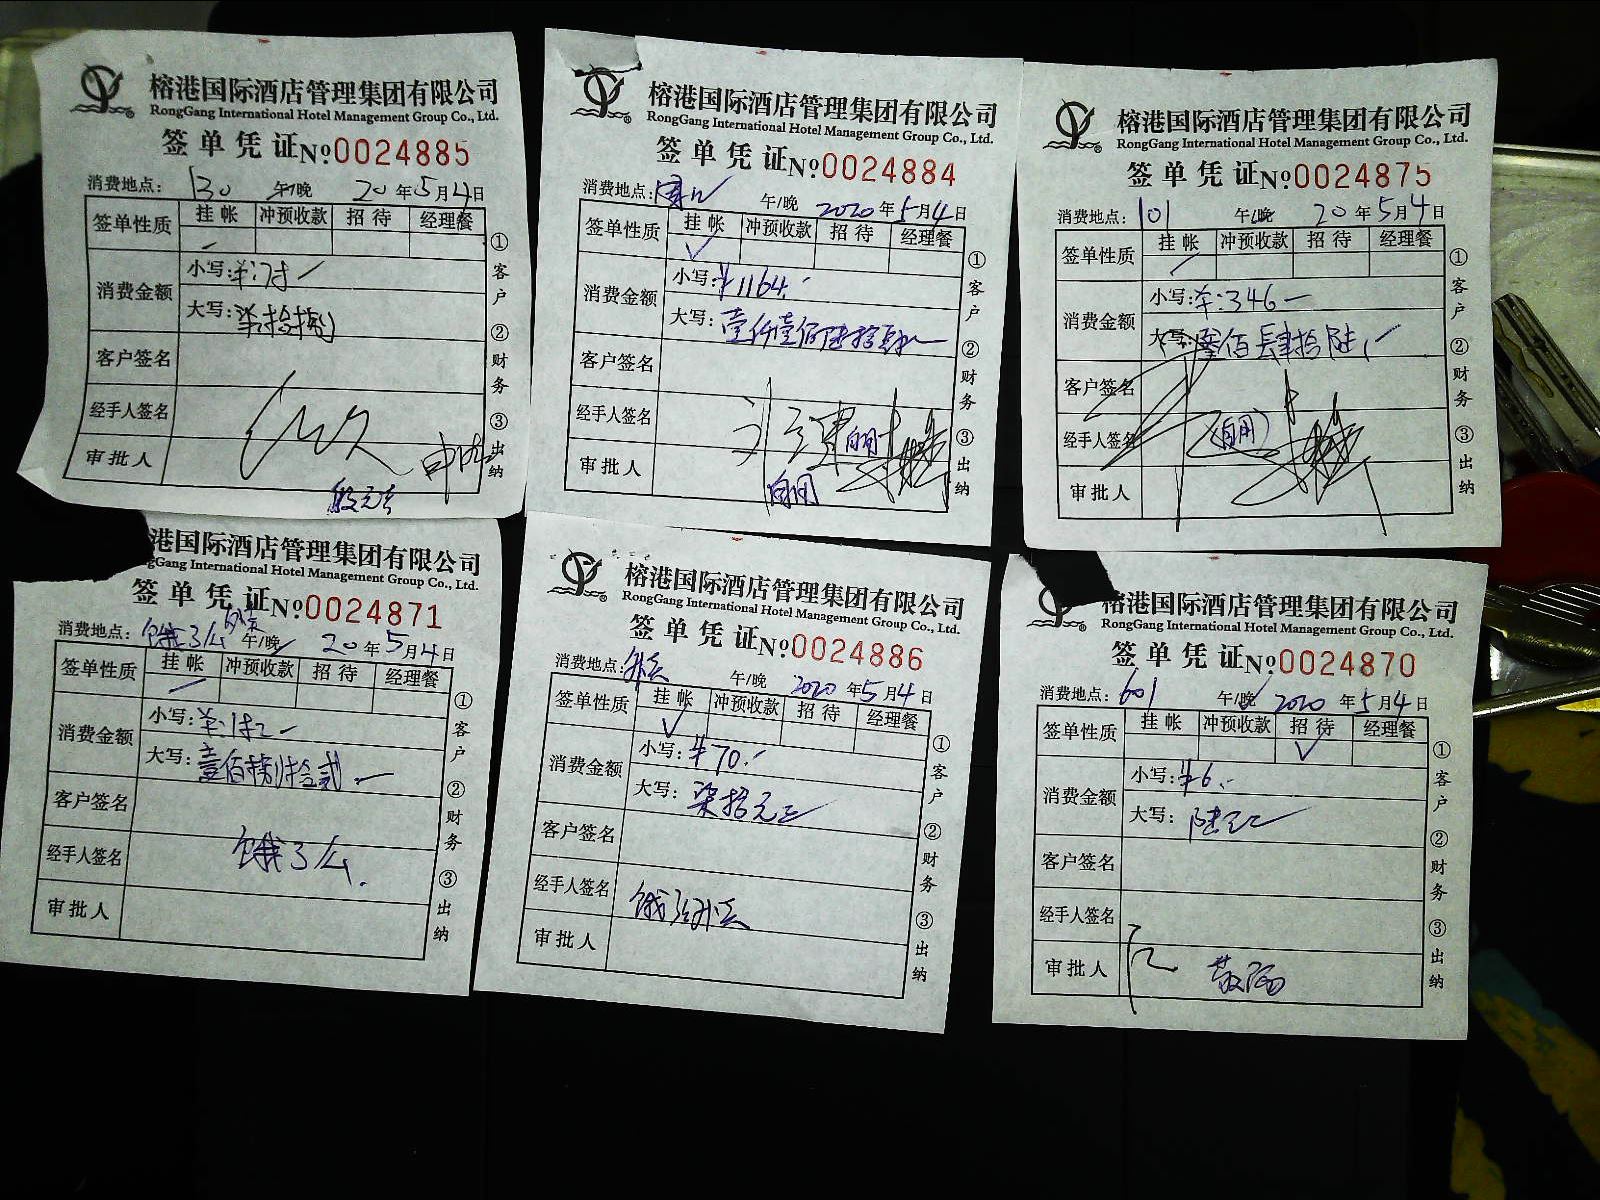 榕港国际酒店管理集团有限公司
RongGang International Hotel Management Group Co., Ltd.
签单凭证 №0024885
消费地点: 130 午/晚 20年5月4日
签单性质 挂帐 冲预收款 招待 经理餐
消费金额 小写:
大写: 柒拾捌
客户签名
经手人签名
审批人
①客户 ②财务 ③出纳
榕港国际酒店管理集团有限公司
RongGang International Hotel Management Group Co., Ltd.
签单凭证 №0024884
消费地点: 午/晚 2020年5月4日
签单性质 挂帐 冲预收款 招待 经理餐
✓
消费金额 小写: ¥1164.-
大写: 壹仟壹佰陆拾肆
客户签名
经手人签名 自用
审批人 自用
①客户 ②财务 ③出纳
榕港国际酒店管理集团有限公司
RongGang International Hotel Management Group Co., Ltd.
签单凭证 №0024875
消费地点: 101 午/晚 20年5月4日
签单性质 挂帐 冲预收款 招待 经理餐
消费金额 小写: ¥:346-
大写: 叁佰肆拾陆
客户签名
经手人签名 (自用)
审批人
①客户 ②财务 ③出纳
港国际酒店管理集团有限公司
gGang International Hotel Management Group Co., Ltd.
签单凭证 №0024871
消费地点: 饿了么外卖 午/晚 20年5月4日
签单性质 挂帐 冲预收款 招待 经理餐
消费金额 小写:
大写: 壹佰捌拾贰
客户签名
经手人签名 饿了么.
审批人
①客户 ②财务 ③出纳
榕港国际酒店管理集团有限公司
RongGang International Hotel Management Group Co., Ltd.
签单凭证 №0024886
消费地点: 外卖 午/晚 2020年5月4日
签单性质 挂帐 冲预收款 招待 经理餐
✓
消费金额 小写: ¥70.-
大写: 柒拾元正
客户签名
经手人签名 饿了么外卖
审批人
①客户 ②财务 ③出纳
榕港国际酒店管理集团有限公司
RongGang International Hotel Management Group Co., Ltd.
签单凭证 №0024870
消费地点: 601 午/晚 2020年5月4日
签单性质 挂帐 冲预收款 招待 经理餐
✓
消费金额 小写: ¥6.-
大写: 陆元
客户签名
经手人签名
审批人
①客户 ②财务 ③出纳